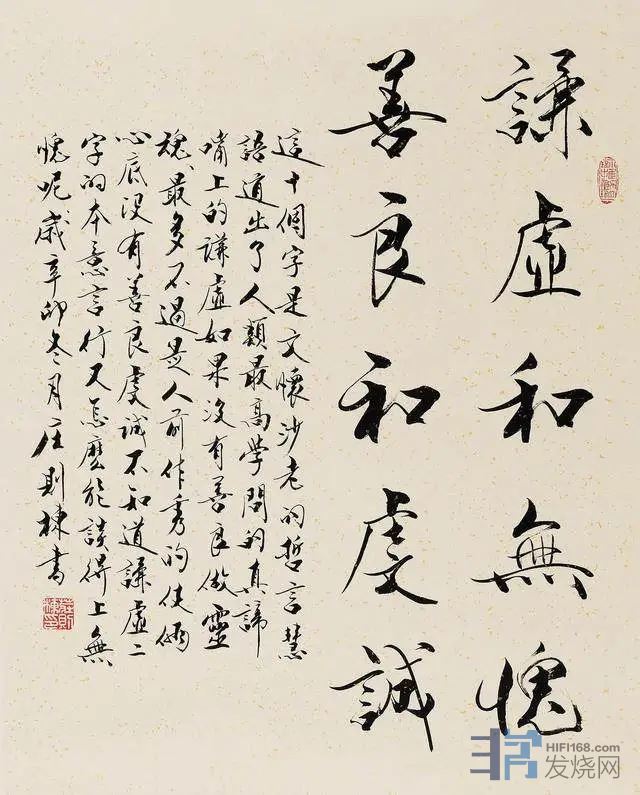 謙虛和無愧
善良和虔誠
這十個字是文懷沙老的哲言慧
語道出了人類最高学問的真諦
嘴上的謙虛如果没有善良做靈
魂、最多不過是人前作秀的伎倆
心底没有善良虔诚不知道謙虛二
字的本意言行又怎麽能談得上無
愧呢歲辛卯冬月庄則棟書
莊則棟印
HIFI168.com
发烧网